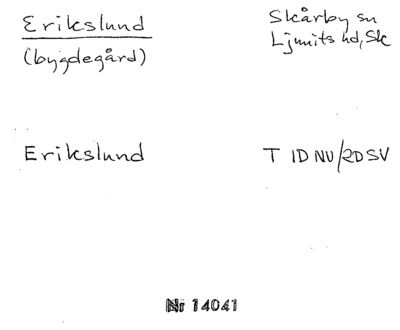 Erikslund
(bygdegård)
Skårby sn
Ljunits hd, Sk
Erikslund
T 1D NV/2D SV
Nr 14041